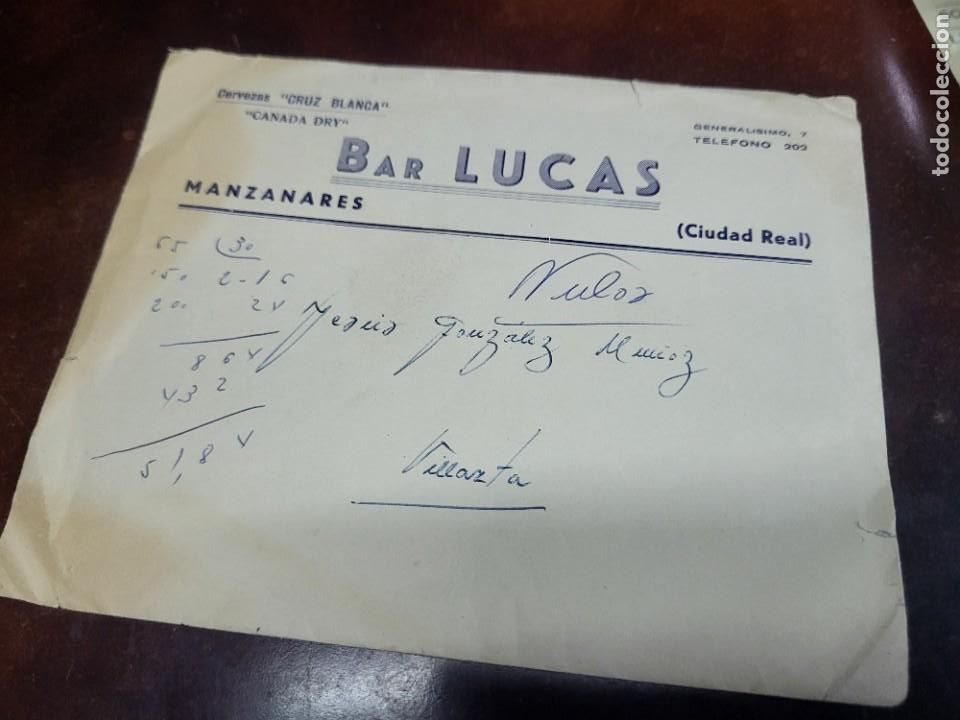 Cervezas "CRUZ BLANCA"
"CANADA DRY"
GENERALISIMO, 7
TELEFONO 202
BAR LUCAS
MANZANARES
(Ciudad Real)
Nulos
65 30
150 2-16
20 24
Jesus González Muñoz
864
432
51,84
Villarta
todocoleccion